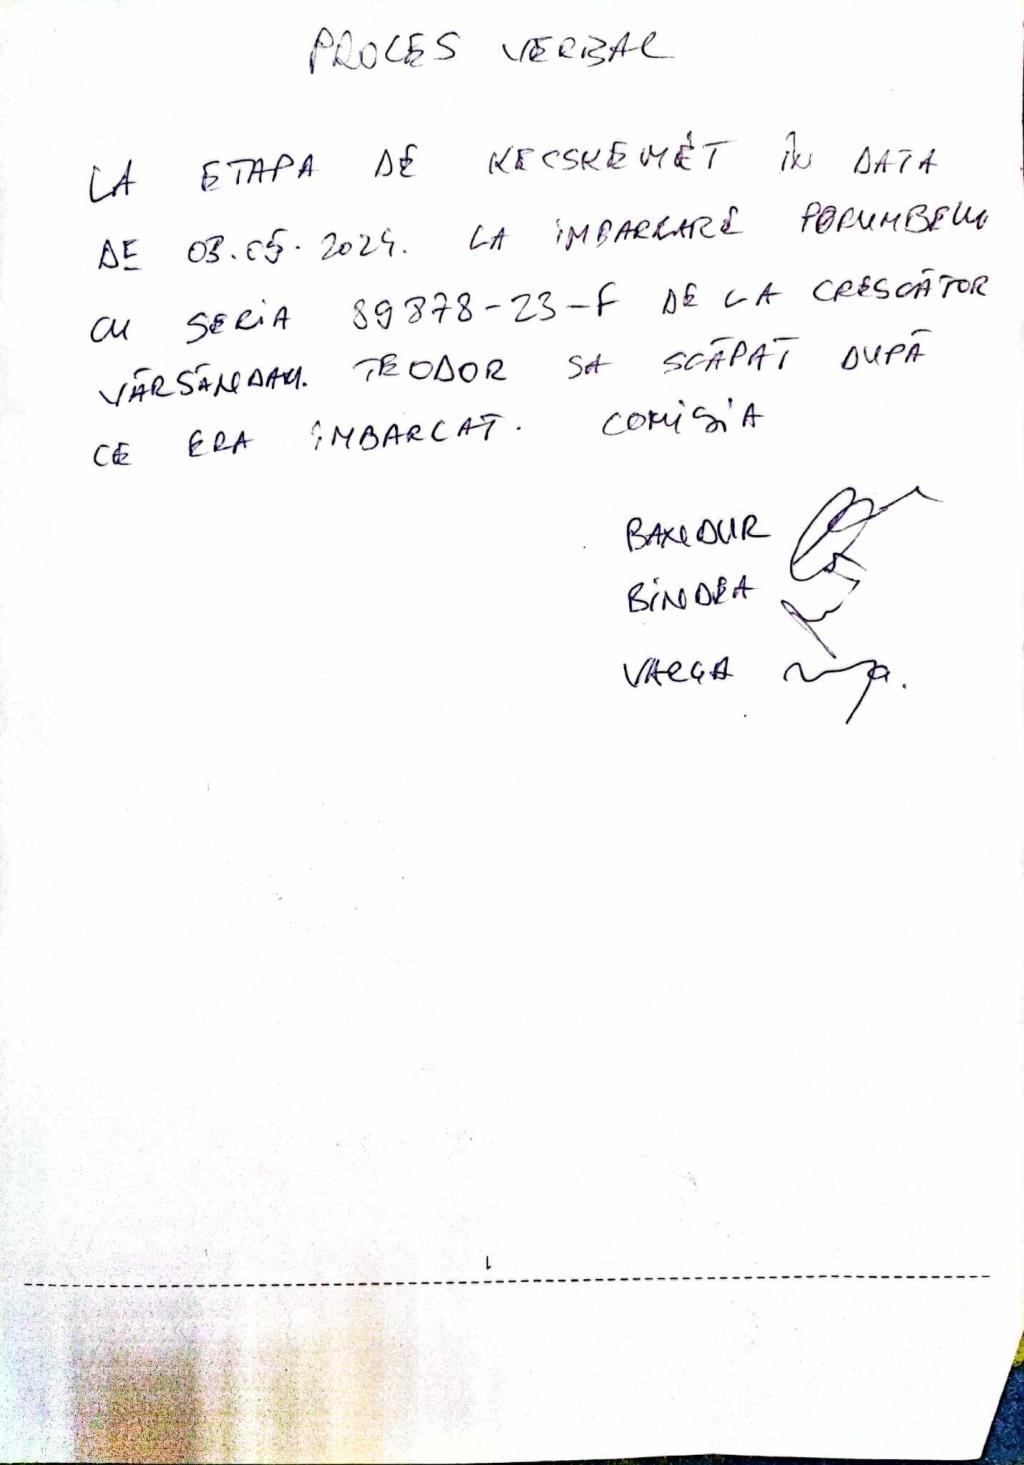 PROCES VERBAL
LA ETAPA DE KECSKEMÉT ÎN DATA
DE 03.05.2024. LA ÎMBARCARE PORUMBELU
CU SERIA 89878-23-F DE LA CRESCĂTOR
VĂRSĂNDAN. TEODOR SA SCĂPAT DUPĂ
CE ERA ÎMBARCAT. COMISIA
BINDEA
VARGA
1